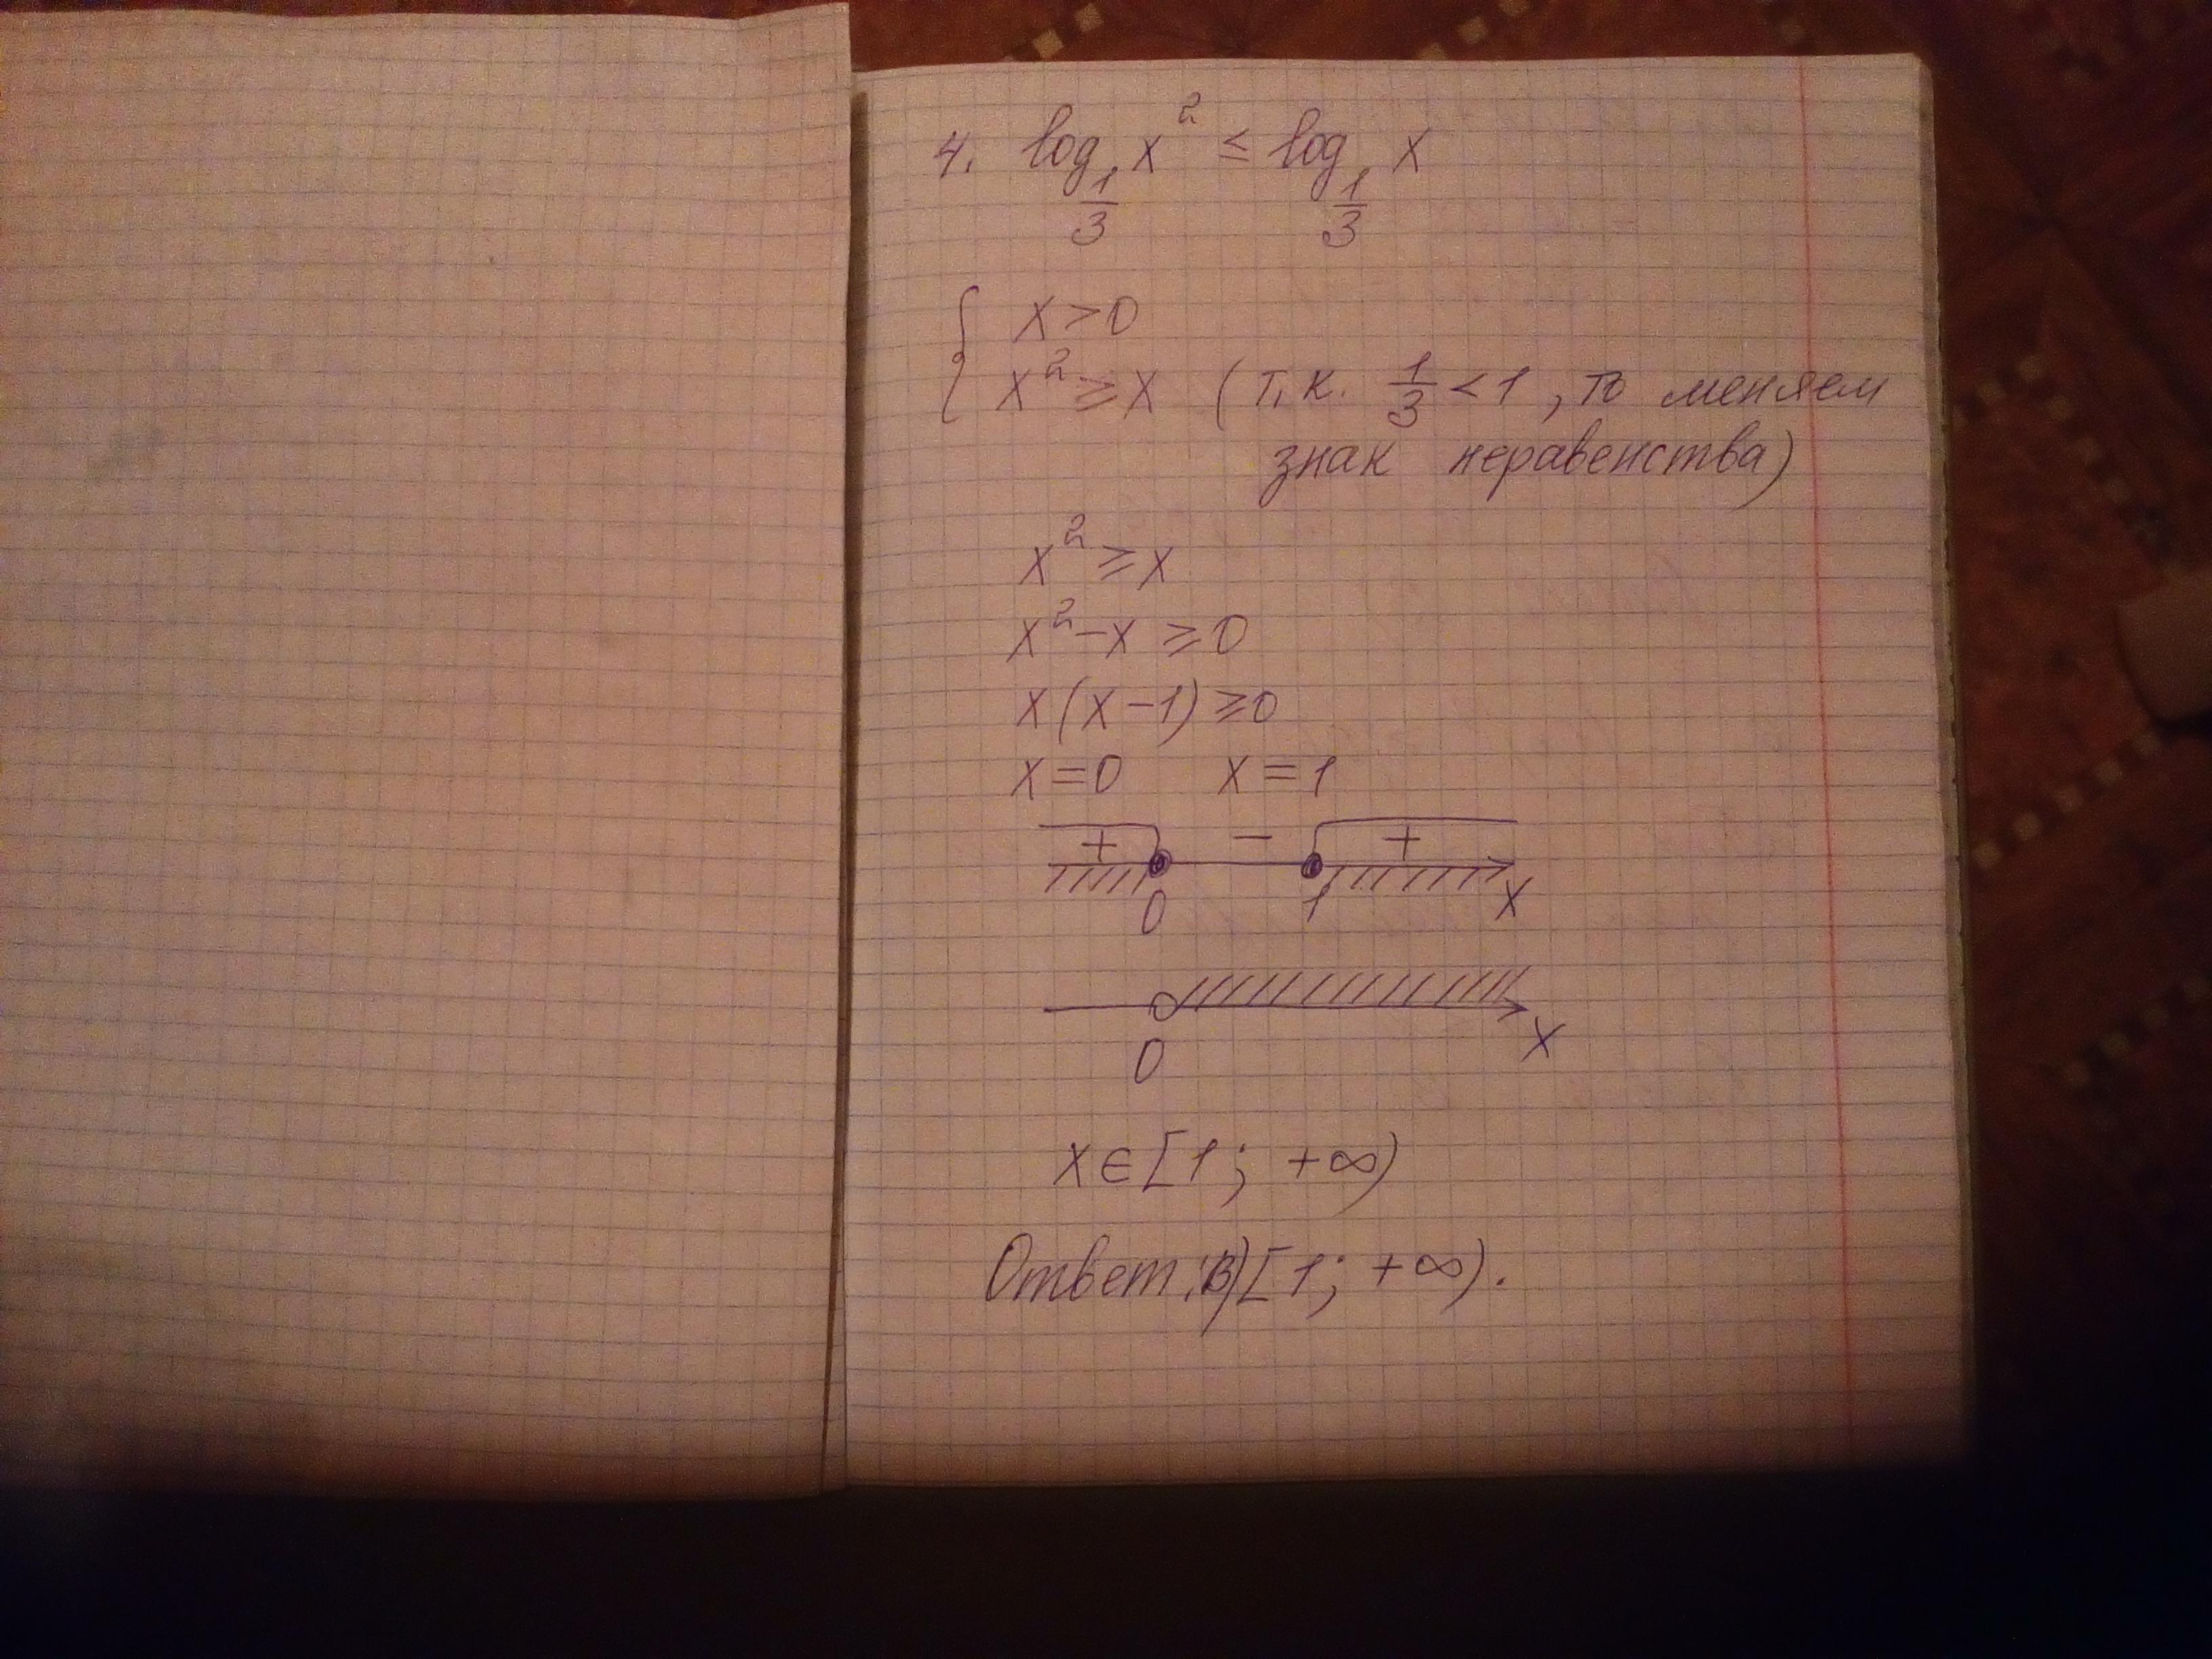 4. log_{1/3} x² ≤ log_{1/3} x
{ x > 0
x² ≥ x (т.к. 1/3 < 1, то меняем
знак неравенства)
x² ≥ x
x² - x ≥ 0
x(x - 1) ≥ 0
x = 0 x = 1
+ - +
0 1 x
0 x
x ∈ [1; +∞)
Ответ: в) [1; +∞).